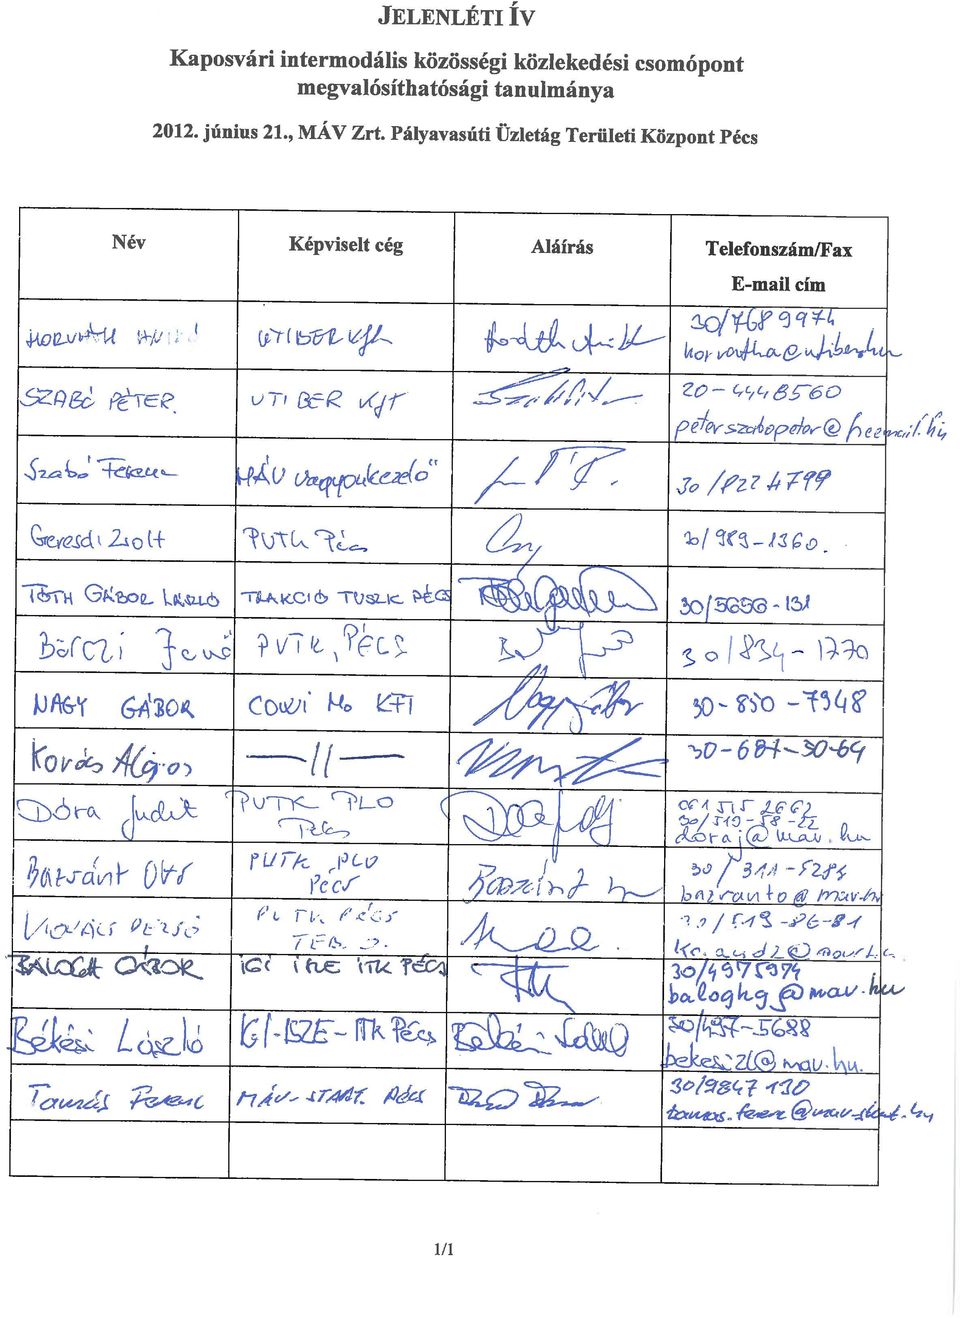 JELENLÉTI ÍV
Kaposvári intermodális közösségi közlekedési csomópont
megvalósíthatósági tanulmánya
2012. június 21., MÁV Zrt. Pályavasúti Üzletág Területi Központ Pécs
Név Képviselt cég Aláírás Telefonszám/Fax
E-mail cím
HORVÁTH UTIBER Kft 30/768 9974
horvatha@utiber.hu
SZABÓ PÉTER. UTIBER Kft 20-4448560
peterszabopeter@freemail.hu
Szabó Ferenc MÁV Vagyonkezelő 30
Geresdi Zsolt PVTK Pécs 30/989-1360.
TÓTH GÁBOR LÁSZLÓ TRAKCIÓ TVSZK PÉCS 30/5656-131
Börczi Jenő PVTK, PÉCS 30/834-1770
NAGY GÁBOR COWI Mo KFT Nagy Gábor 30-850-7948
Kovács Ágoston —//— 30-687-30-64
Dóra Judit PVTK PLO
Pécs
30/510-58-22
doraj@mav.hu
Bazsánt Ottó PVTK PLO 30/311-5284
Pécs
Kovács Dezső PVTK Pécs
TEB.
BALOGH GÁBOR IGI IFLE ITK PÉCS 30/4975974
baloghg@mav.hu
Békési László IGI-ISZE-ITK Pécs 30/497-5688
bekesizl@mav.hu.
Tamás Ferenc MÁV-START. Pécs 30/9847130
tamas.ferenc@mav-start.hu
1/1